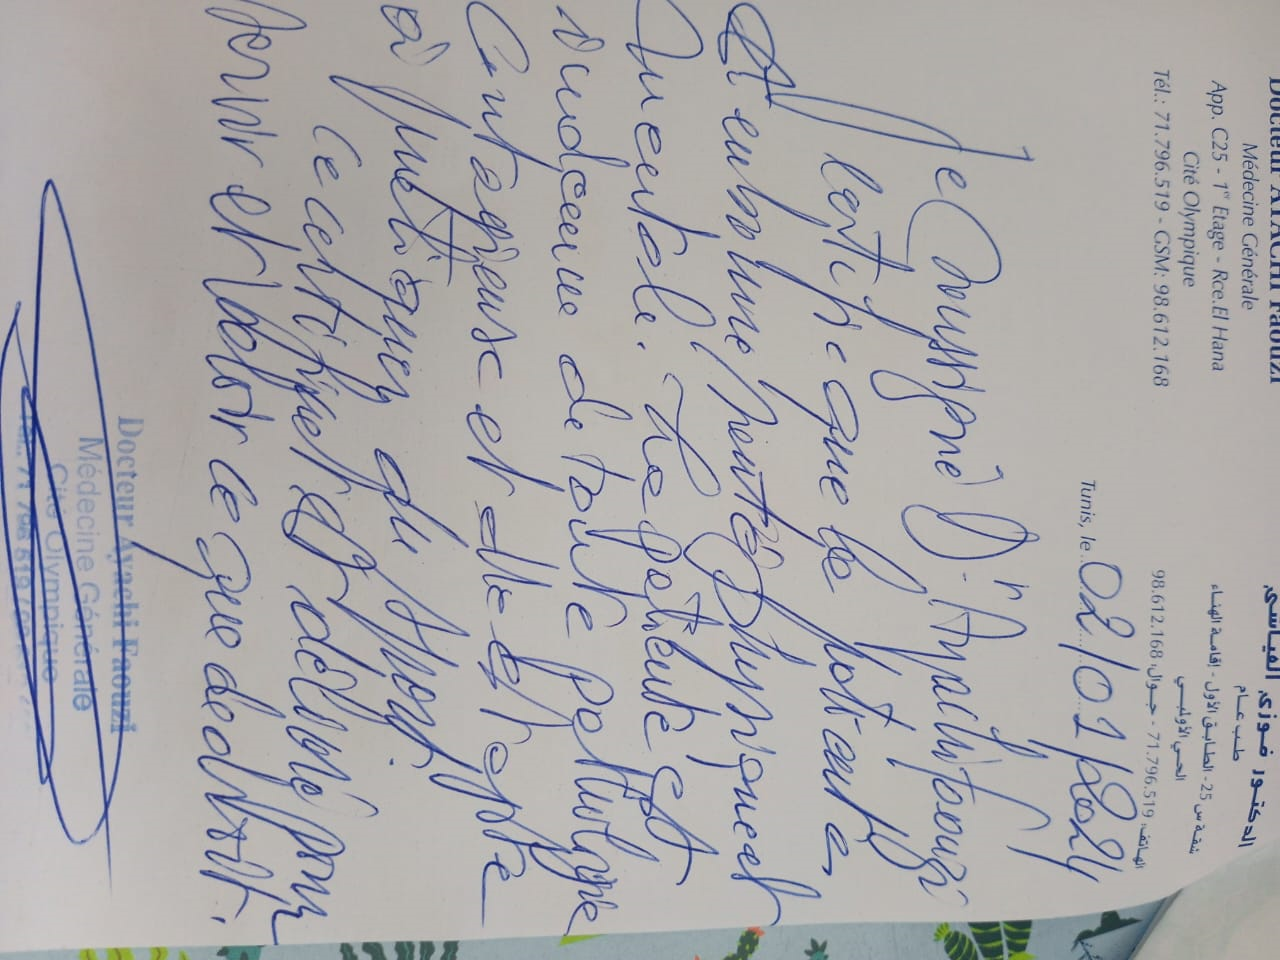 Docteur AYACHI Faouzi
Médecine Générale
App. C25 - 1er Etage - Rce.El Hana
Cité Olympique
Tél.: 71.796.519 - GSM: 98.612.168
الدكتور فوزي العياشي
طب عام
شقة س 25 - الطابق الأول - إقامة الهناء
الحي الأولمبي
الهاتف: 71.796.519 - جوال: 98.612.168
Tunis, le 02/01/2024
Je soussigné Dr Ayachi Faouzi
certifie que la patiente,
est en bonne santé physique et
mentale. La patiente est
indemne de toute pathologie
contagieuse et elle est apte
à pratiquer du sport.
Ce certificat est délivré pour
servir et valoir ce que de droit.
Docteur Ayachi Faouzi
Médecine Générale
Cité Olympique
Tél.: 71 796 519